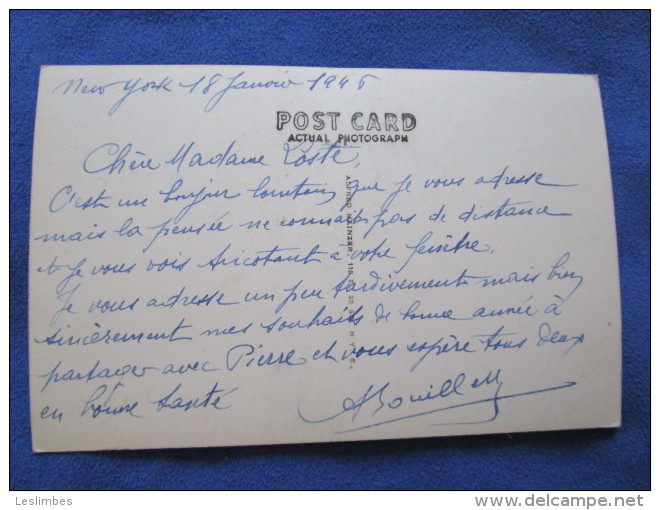 New York 18 Janvier 1945
POST CARD
ACTUAL PHOTOGRAPH
Chère Madame Coste,
C'est un bonjour lointain que je vous adresse
mais la pensée ne connait pas de distance
et je vous vois tricotant à votre fenêtre.
Je vous adresse un peu tardivement mais bien
sincèrement mes souhaits de bonne année à
partager avec Pierre et vous espère tous deux
en bonne santé
ALFRED MAINZER, 110
Leslimbes
delcampe.net